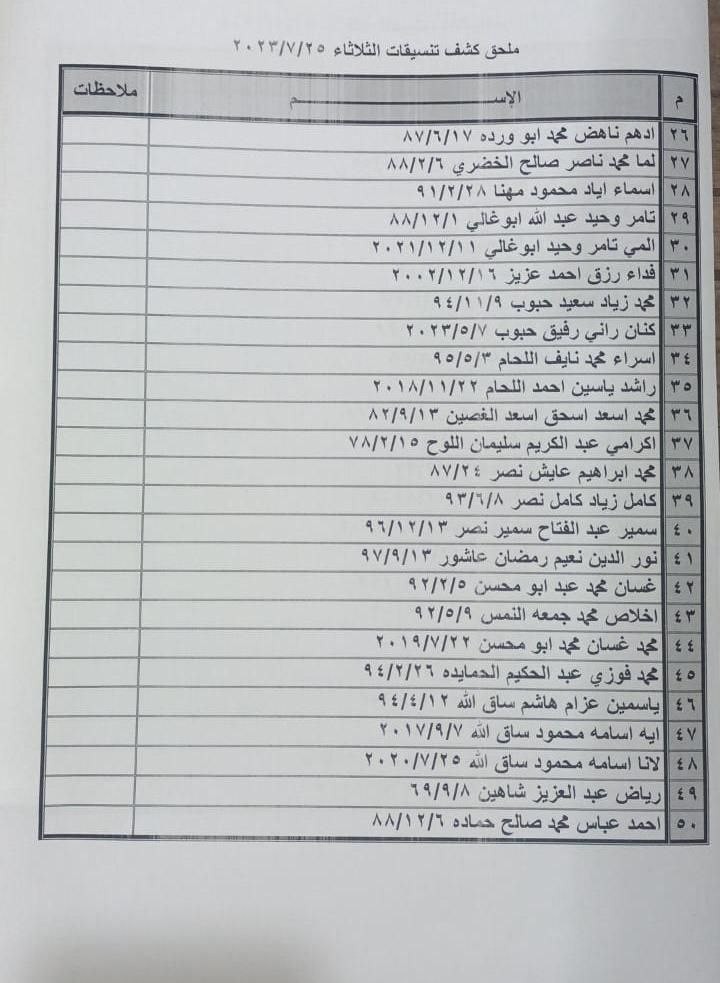 ملحق كشف تنسيقات الثلاثاء ٢٠٢٣/٧/٢٥
م الإســـــــــــــم ملاحظات
٢٦ ادهم ناهض محمد ابو ورده ٨٧/٦/١٧
٢٧ لما محمد ناصر صالح الخضري ٨٨/٢/٦
٢٨ اسماء اياد محمود مهنا ٩١/٢/٢٨
٢٩ تامر وحيد عبد الله ابوغالي ٨٨/١٢/١
٣٠ المي تامر وحيد ابوغالي ٢٠٢١/١٢/١١
٣١ فداء رزق احمد عزيز ٢٠٠٢/١٢/١٦
٣٢ محمد زياد سعيد حبوب ٩٤/١١/٩
٣٣ كنان راني رفيق حبوب ٢٠٢٣/٥/٧
٣٤ اسراء محمد نايف اللحام ٩٥/٥/٣
٣٥ راشد ياسين احمد اللحام ٢٠١٨/١١/٢٢
٣٦ محمد اسعد اسحق اسعد الغصين ٨٢/٩/١٣
٣٧ اكرامي عبد الكريم سليمان اللوح ٧٨/٢/١٥
٣٨ محمد ابراهيم عايش نصر ٨٧/٢٤
٣٩ كامل زياد كامل نصر ٩٣/٦/٨
٤٠ سمير عبد الفتاح سمير نصر ٩٦/١٢/١٣
٤١ نور الدين نعيم رمضان عاشور ٩٧/٩/١٣
٤٢ غسان محمد عبد ابو محسن ٩٢/٢/٥
٤٣ اخلاص محمد جمعه النمس ٩٢/٥/٩
٤٤ محمد غسان محمد ابو محسن ٢٠١٩/٧/٢٢
٤٥ محمد فوزي عبد الحكيم الحمايده ٩٤/٢/٢٦
٤٦ ياسمين عزام هاشم ساق الله ٩٤/٤/١٢
٤٧ ايه اسامه محمود ساق الله ٢٠١٧/٩/٧
٤٨ لانا اسامه محمود ساق الله ٢٠٢٠/٧/٢٥
٤٩ رياض عبد العزيز شاهين ٦٩/٩/٨
٥٠ احمد عباس محمد صالح حماده ٨٨/١٢/٦